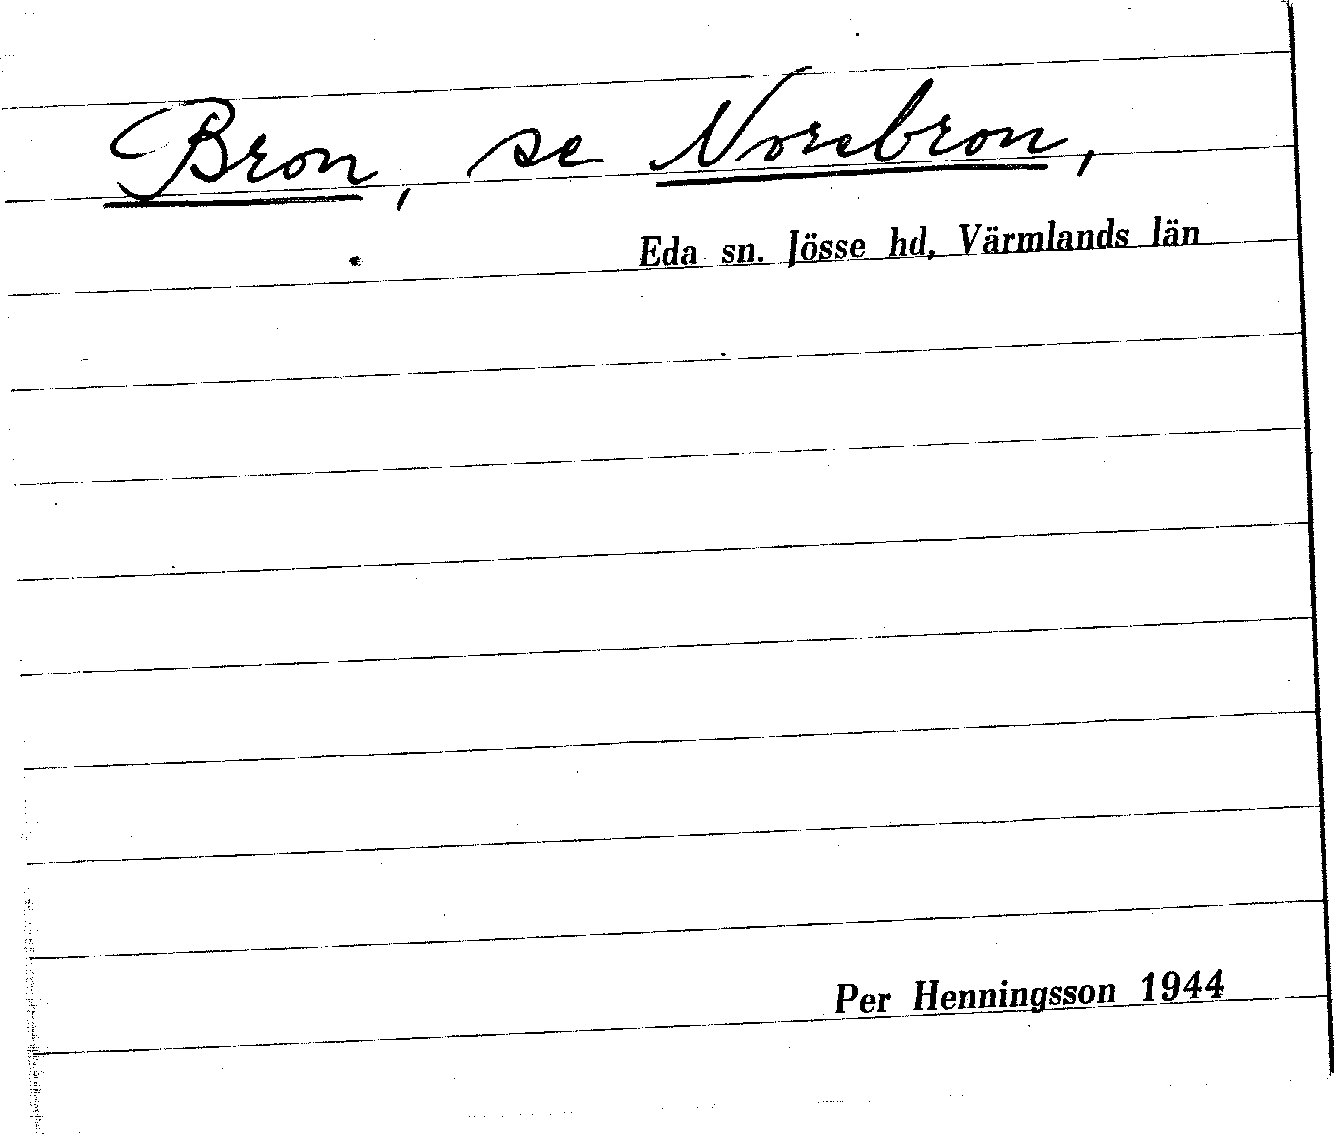 Bron, se Norebron,
Eda sn. Jösse hd, Värmlands län
Per Henningsson 1944